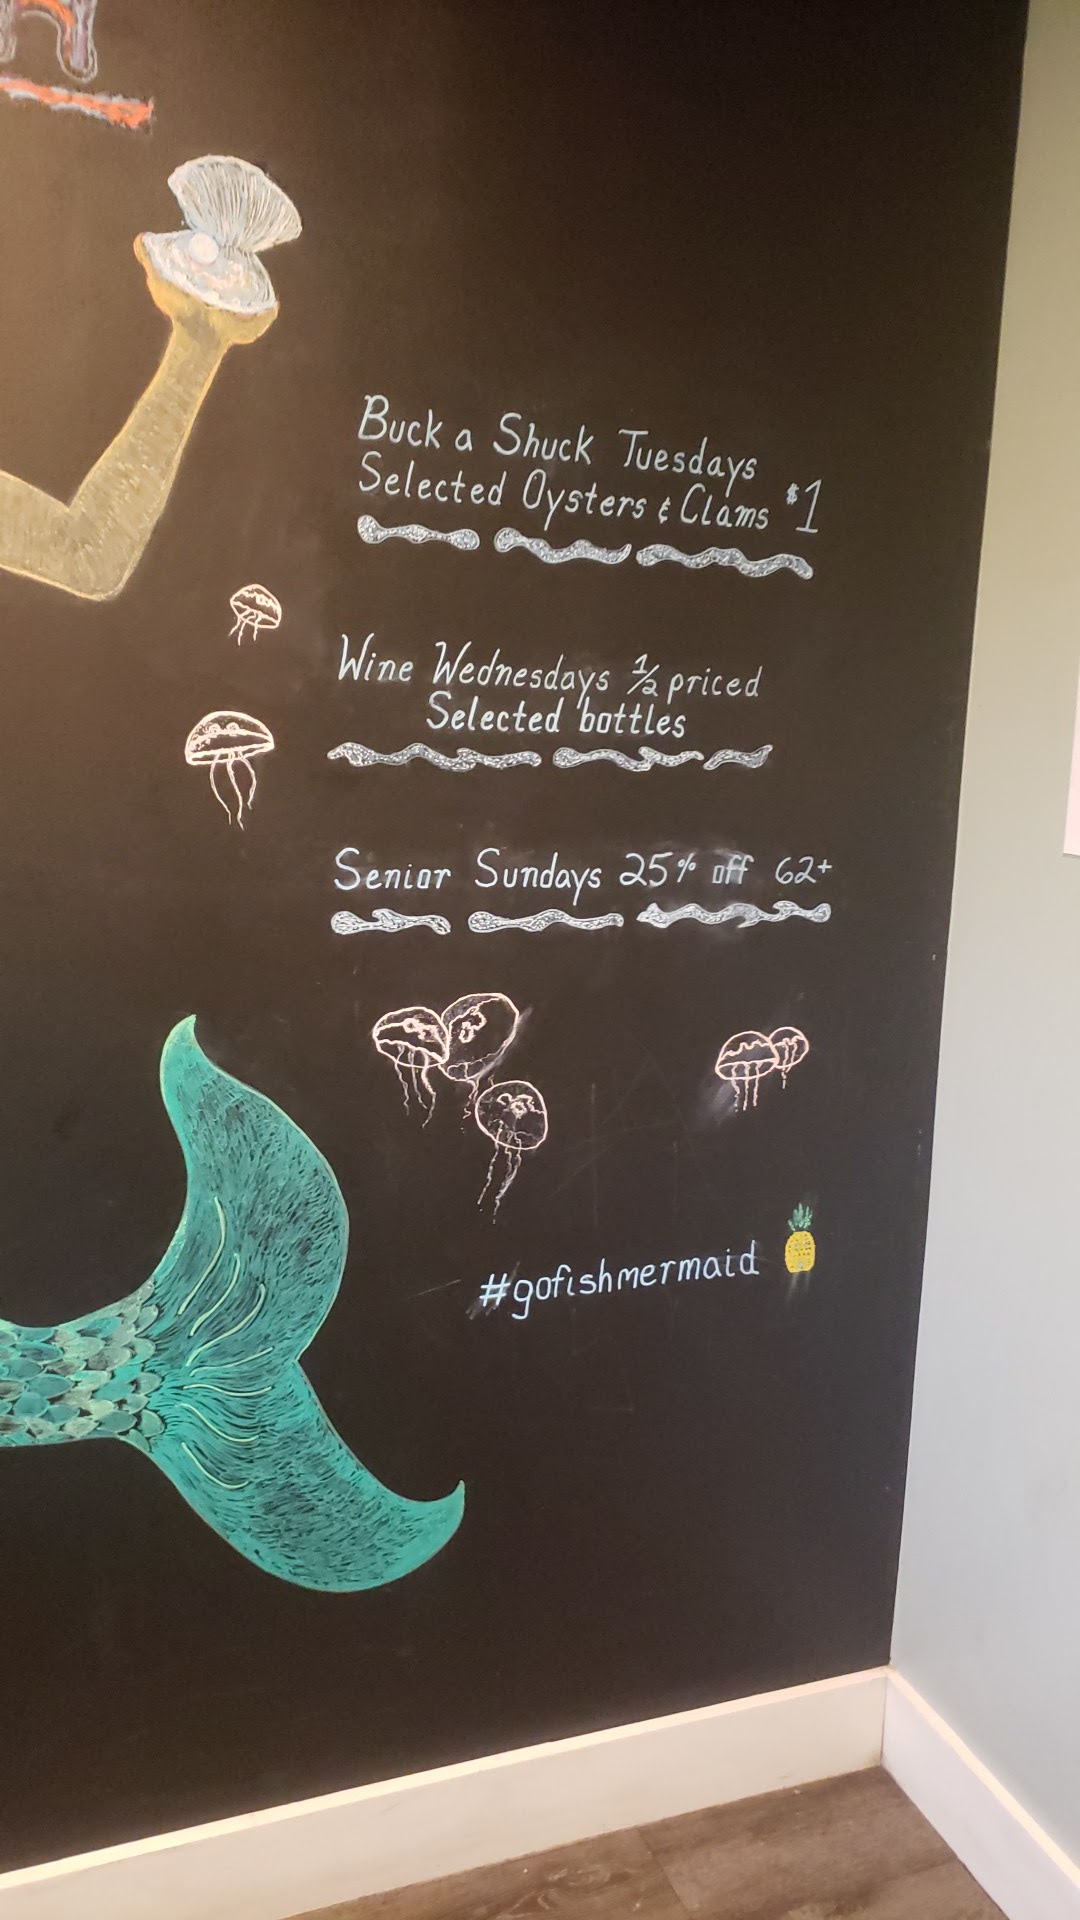 Buck a Shuck Tuesdays
Selected Oysters & Clams $1
Wine Wednesdays 1/2 priced
Selected bottles
Senior Sundays 25% off 62+
#gofishmermaid